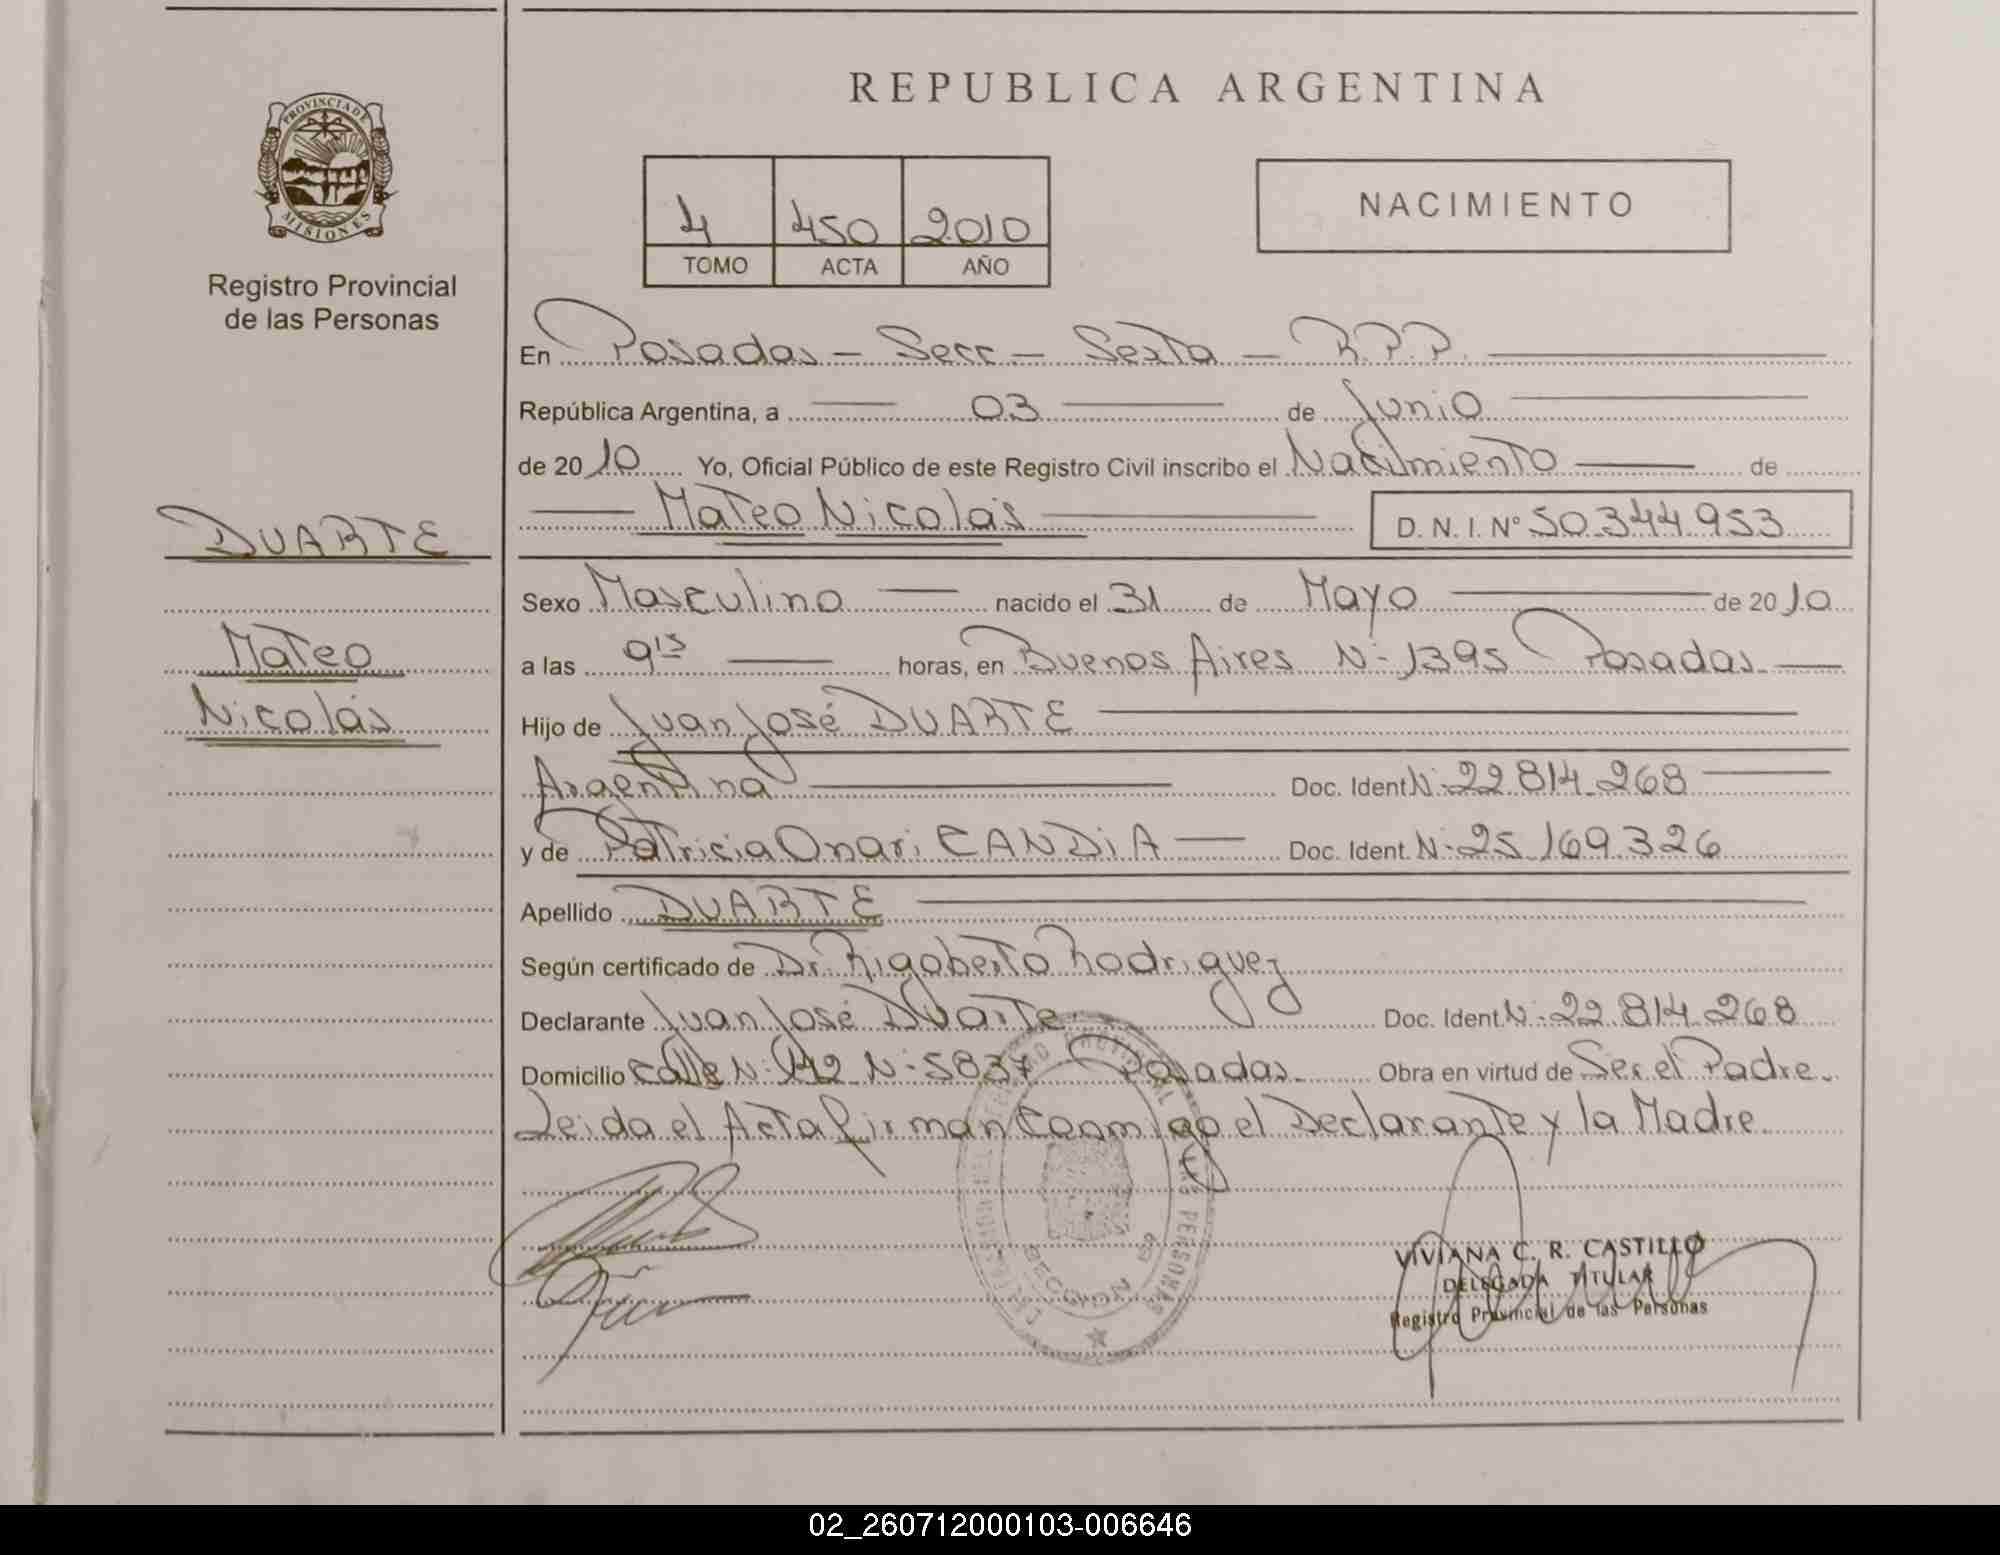 REPUBLICA ARGENTINA
PROVINCIA DE
MISIONES
Registro Provincial
de las Personas
4 450 2010
TOMO ACTA AÑO
NACIMIENTO
En Posadas - Secc - Sexta - R.P.P.
República Argentina, a 03 de Junio
de 2010 Yo, Oficial Público de este Registro Civil inscribo el Nacimiento de
Mateo Nicolás D.N.I. Nº 50.344.953
DUARTE
Mateo
Nicolás
Sexo Masculino nacido el 31 de Mayo de 2010
a las 9 15 horas, en Buenos Aires Nº 1395 Posadas
Hijo de Juan José DUARTE
Argentina Doc. Ident Nº 22 814 268
y de Patricia Onari CANDiA Doc. Ident. Nº 25 169 326
Apellido DUARTE
Según certificado de Dr. Rigoberto Rodriguez
Declarante Juan José Duarte Doc. Ident Nº 22 814 268
Domicilio calle Nº 142 Nº 5837 Posadas Obra en virtud de Ser el Padre.
Leida el Acta firman conmigo el Declarante y la Madre
SECCION
VIVIANA C. R. CASTILLO
DELEGADA TITULAR
Registro Provincial de las Personas
02_260712000103-006646